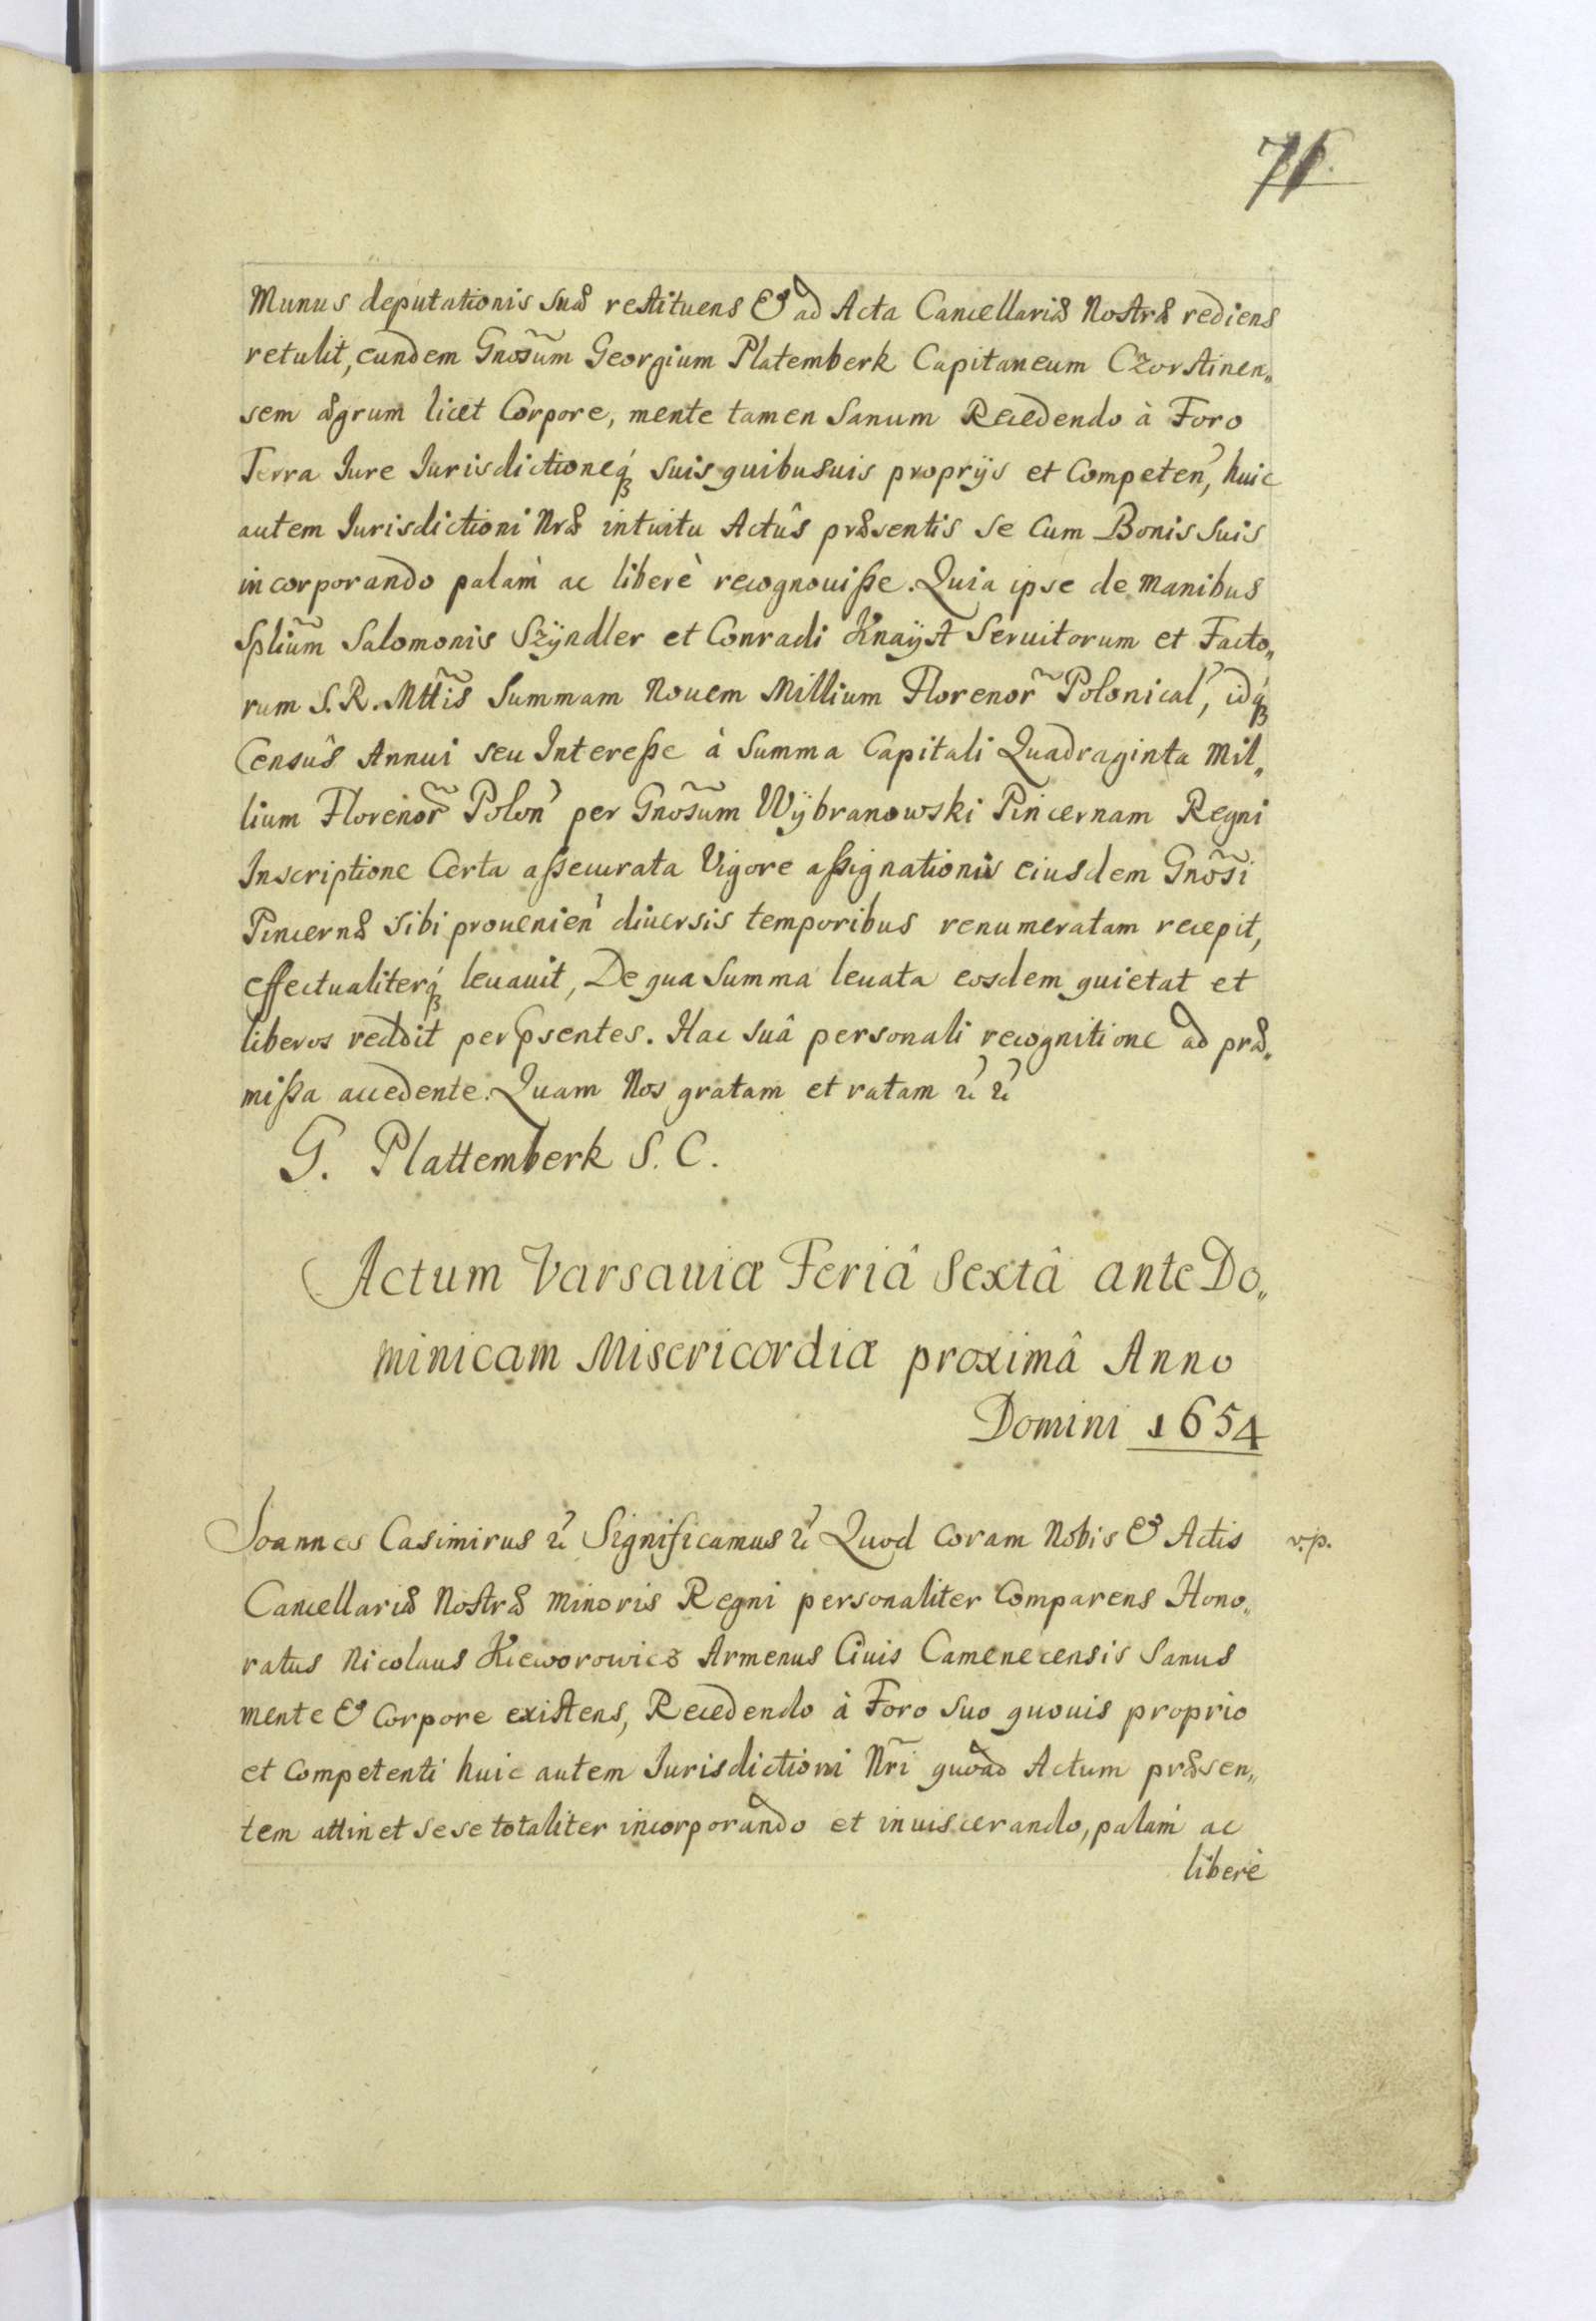 71.
Munus deputationis suæ restituens & ad Acta Cancellariæ Nostræ rediens
retulit, eundem Gnõsum Georgium Platemberk Capitaneum Czorstinen„
sem ægrum licet Corpore, mente tamen sanum Recedendo à Foro
Terra Iure Iurisdictioneq́ꝫ suis quibusuis proprÿs et Competen̉, huic
autem Iurisdictioni Nræ intuitu Actûs præsentis se cum Bonis suis
incorporando palàm ac liberè recognouiße. Quia ipse de manibus
Splĩum Salomonis Szÿndler et Conradi Knaÿst Seruitorum et Facto„
rum S.R.Mttĩs Summam Nouem Millium Florenor̃ Polonical̉, idq́ꝫ
Censûs Annui seu Intereße à Summa Capitali Quadraginta Mil„
lium Florenor̃ Polon̉ per Gnõsum Wÿbranowski Pincernam Regni
Inscriptione Certa aßecurata Vigore aßignationis eiusdem Gnõsi
Pincernæ sibi prouenien̉ diuersis temporibus renumeratam recepit,
effectualiterq́ꝫ leuauit, De qua Summa leuata eosdem quietat et
liberos reddit per p̃sentes. Hac suâ personali recognitione ad præ„
mißa accedente. Quam Nos gratam et ratam ꝛ̉ ꝛ̉
G. Plattemberk S. C.
Actum Varsauiæ Feriâ Sextâ ante Do„
minicam Misericordiæ proximâ Anno
Domini 1654
Joannes Casimirus ꝛ̉ Significamus ꝛ̉ Quod coram Nobis & Actis
v.p.
Cancellariæ Nostræ minoris Regni personaliter Comparens Hono„
ratus Nicolaus Kieworowicz Armenus Ciuis Camenecensis Sanus
mente & Corpore existens, Recedendo à Foro suo quouis proprio
et Competenti huic autem Iurisdictioni Nr̃i quoad Actum præsen„
tem attinet sese totaliter incorporando et inuiscerando, palàm ac
liberè